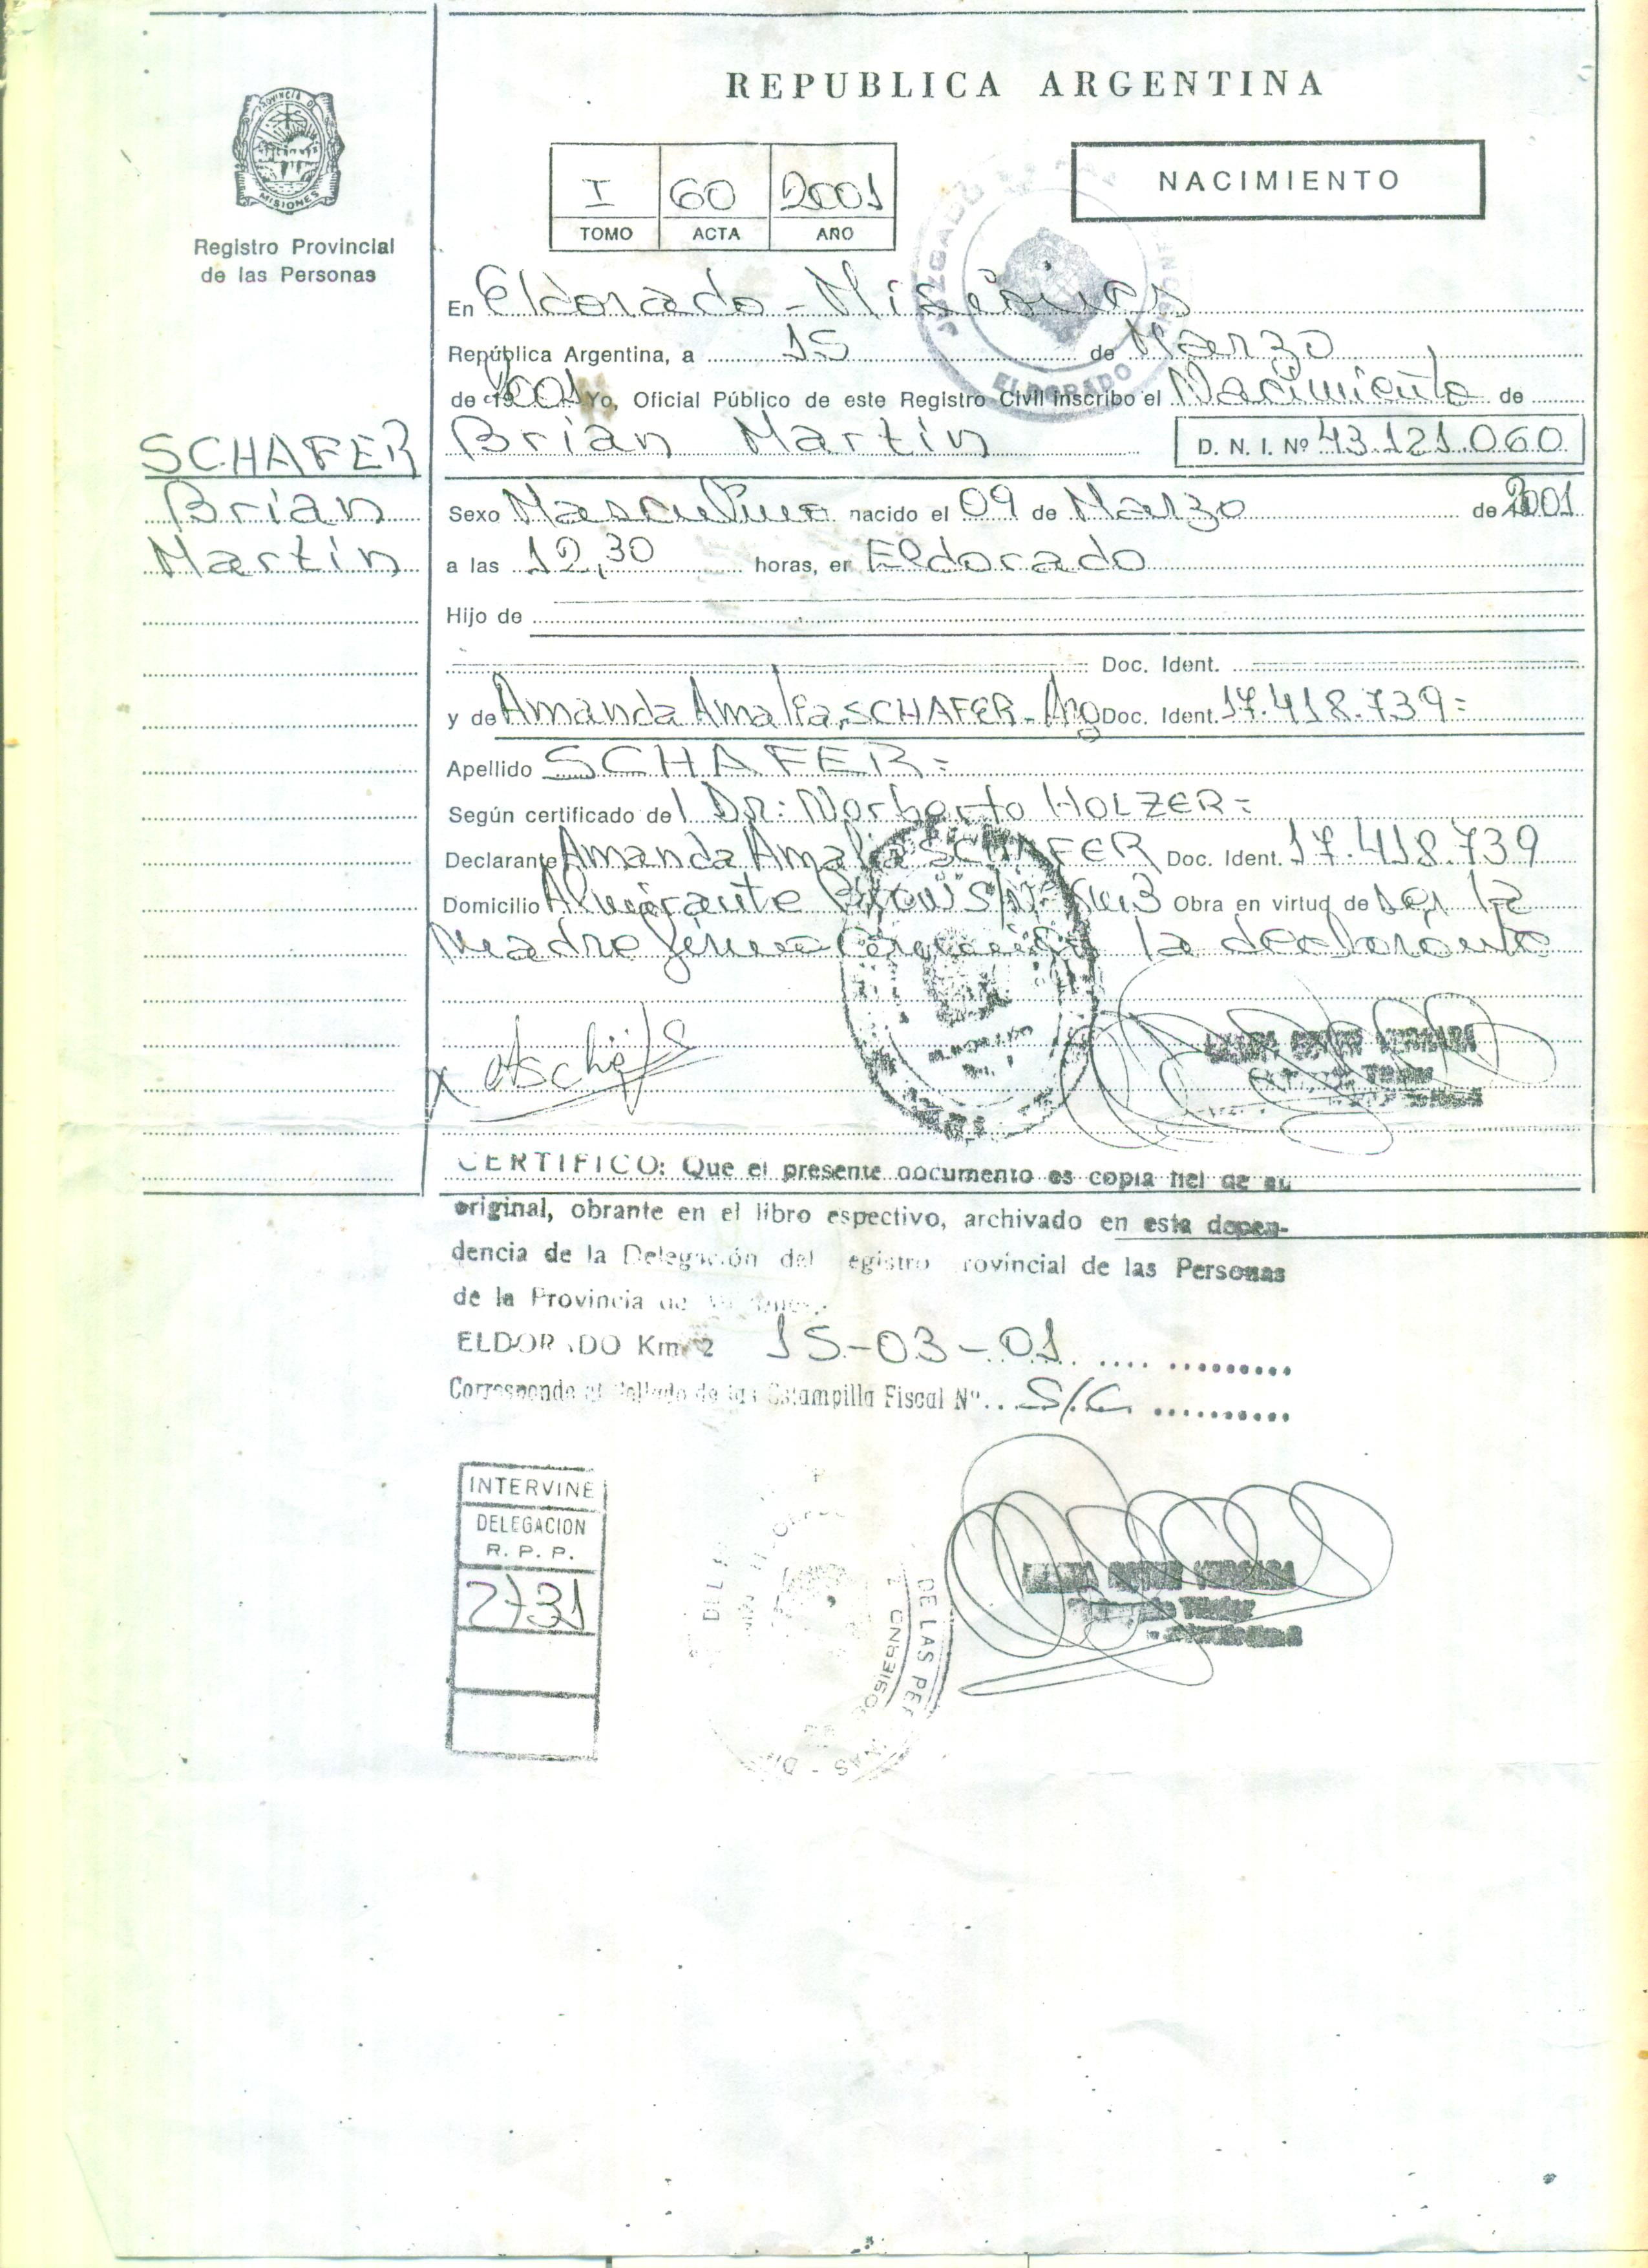 PROVINCIA DE
MISIONES
Registro Provincial
de las Personas
SCHAFER
Brian
Martin
REPUBLICA ARGENTINA
I 60 2001
TOMO ACTA AÑO
NACIMIENTO
JUZGADO
ELDORADO
En Eldorado - Misiones
República Argentina, a 15 de Marzo
de 2001 Yo, Oficial Público de este Registro Civil inscribo el Nacimiento de
Brian Martin D. N. I. Nº 43.121.060
Sexo Masculino nacido el 09 de Marzo de 2001
a las 12,30 horas, en Eldorado
Hijo de
Doc. Ident.
y de Amanda Amalia SCHAFER - Arg Doc. Ident. 17.418.739=
Apellido SCHAFER=
Según certificado del Dr: Norberto HOLZER=
Declarante Amanda Amalia SCHAFER Doc. Ident. 17.418.739
Domicilio Almirante Brown S/Nº Obra en virtud de ser la
Madre la declarante
CERTIFICO: Que el presente documento es copia fiel de su
original, obrante en el libro espectivo, archivado en esta depen-
dencia de la Delegación del egistro rovincial de las Personas
de la Provincia de
ELDORADO Km 2 15-03-01
Corresponde al Sellado de las Estampilla Fiscal Nº S/C
INTERVINE
DELEGACION
R. P. P.
2731
DE LAS PE